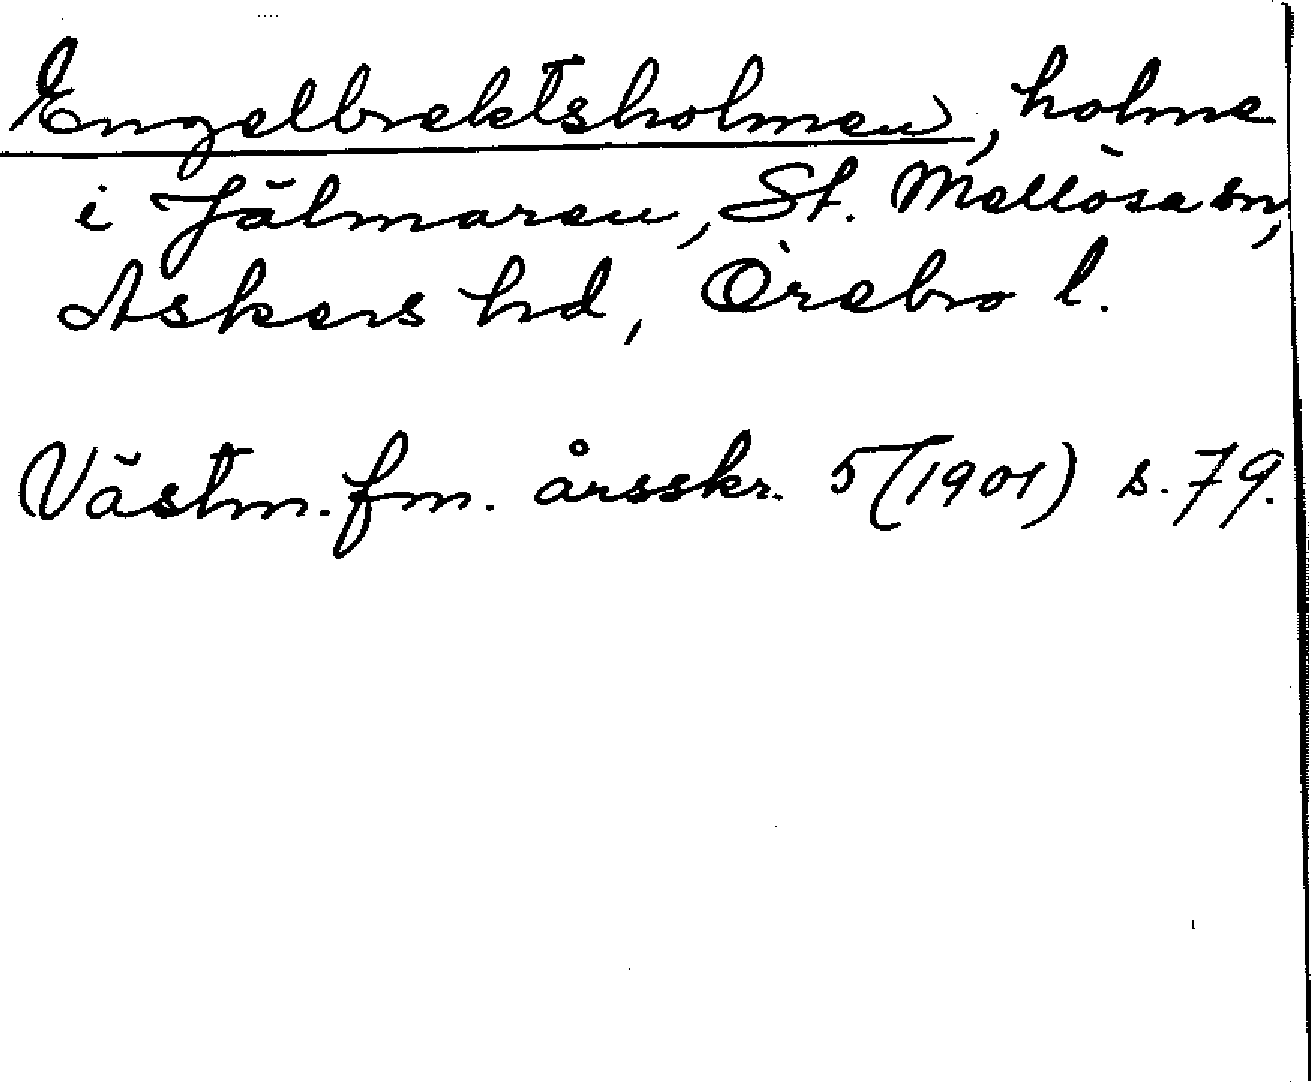 Engelbrektsholmen, holme
i Jälmaren, St. Mellösa sn,
Askers hd, Örebro l.
Västm. fm. årsskr. 5 (1901) s. 79.